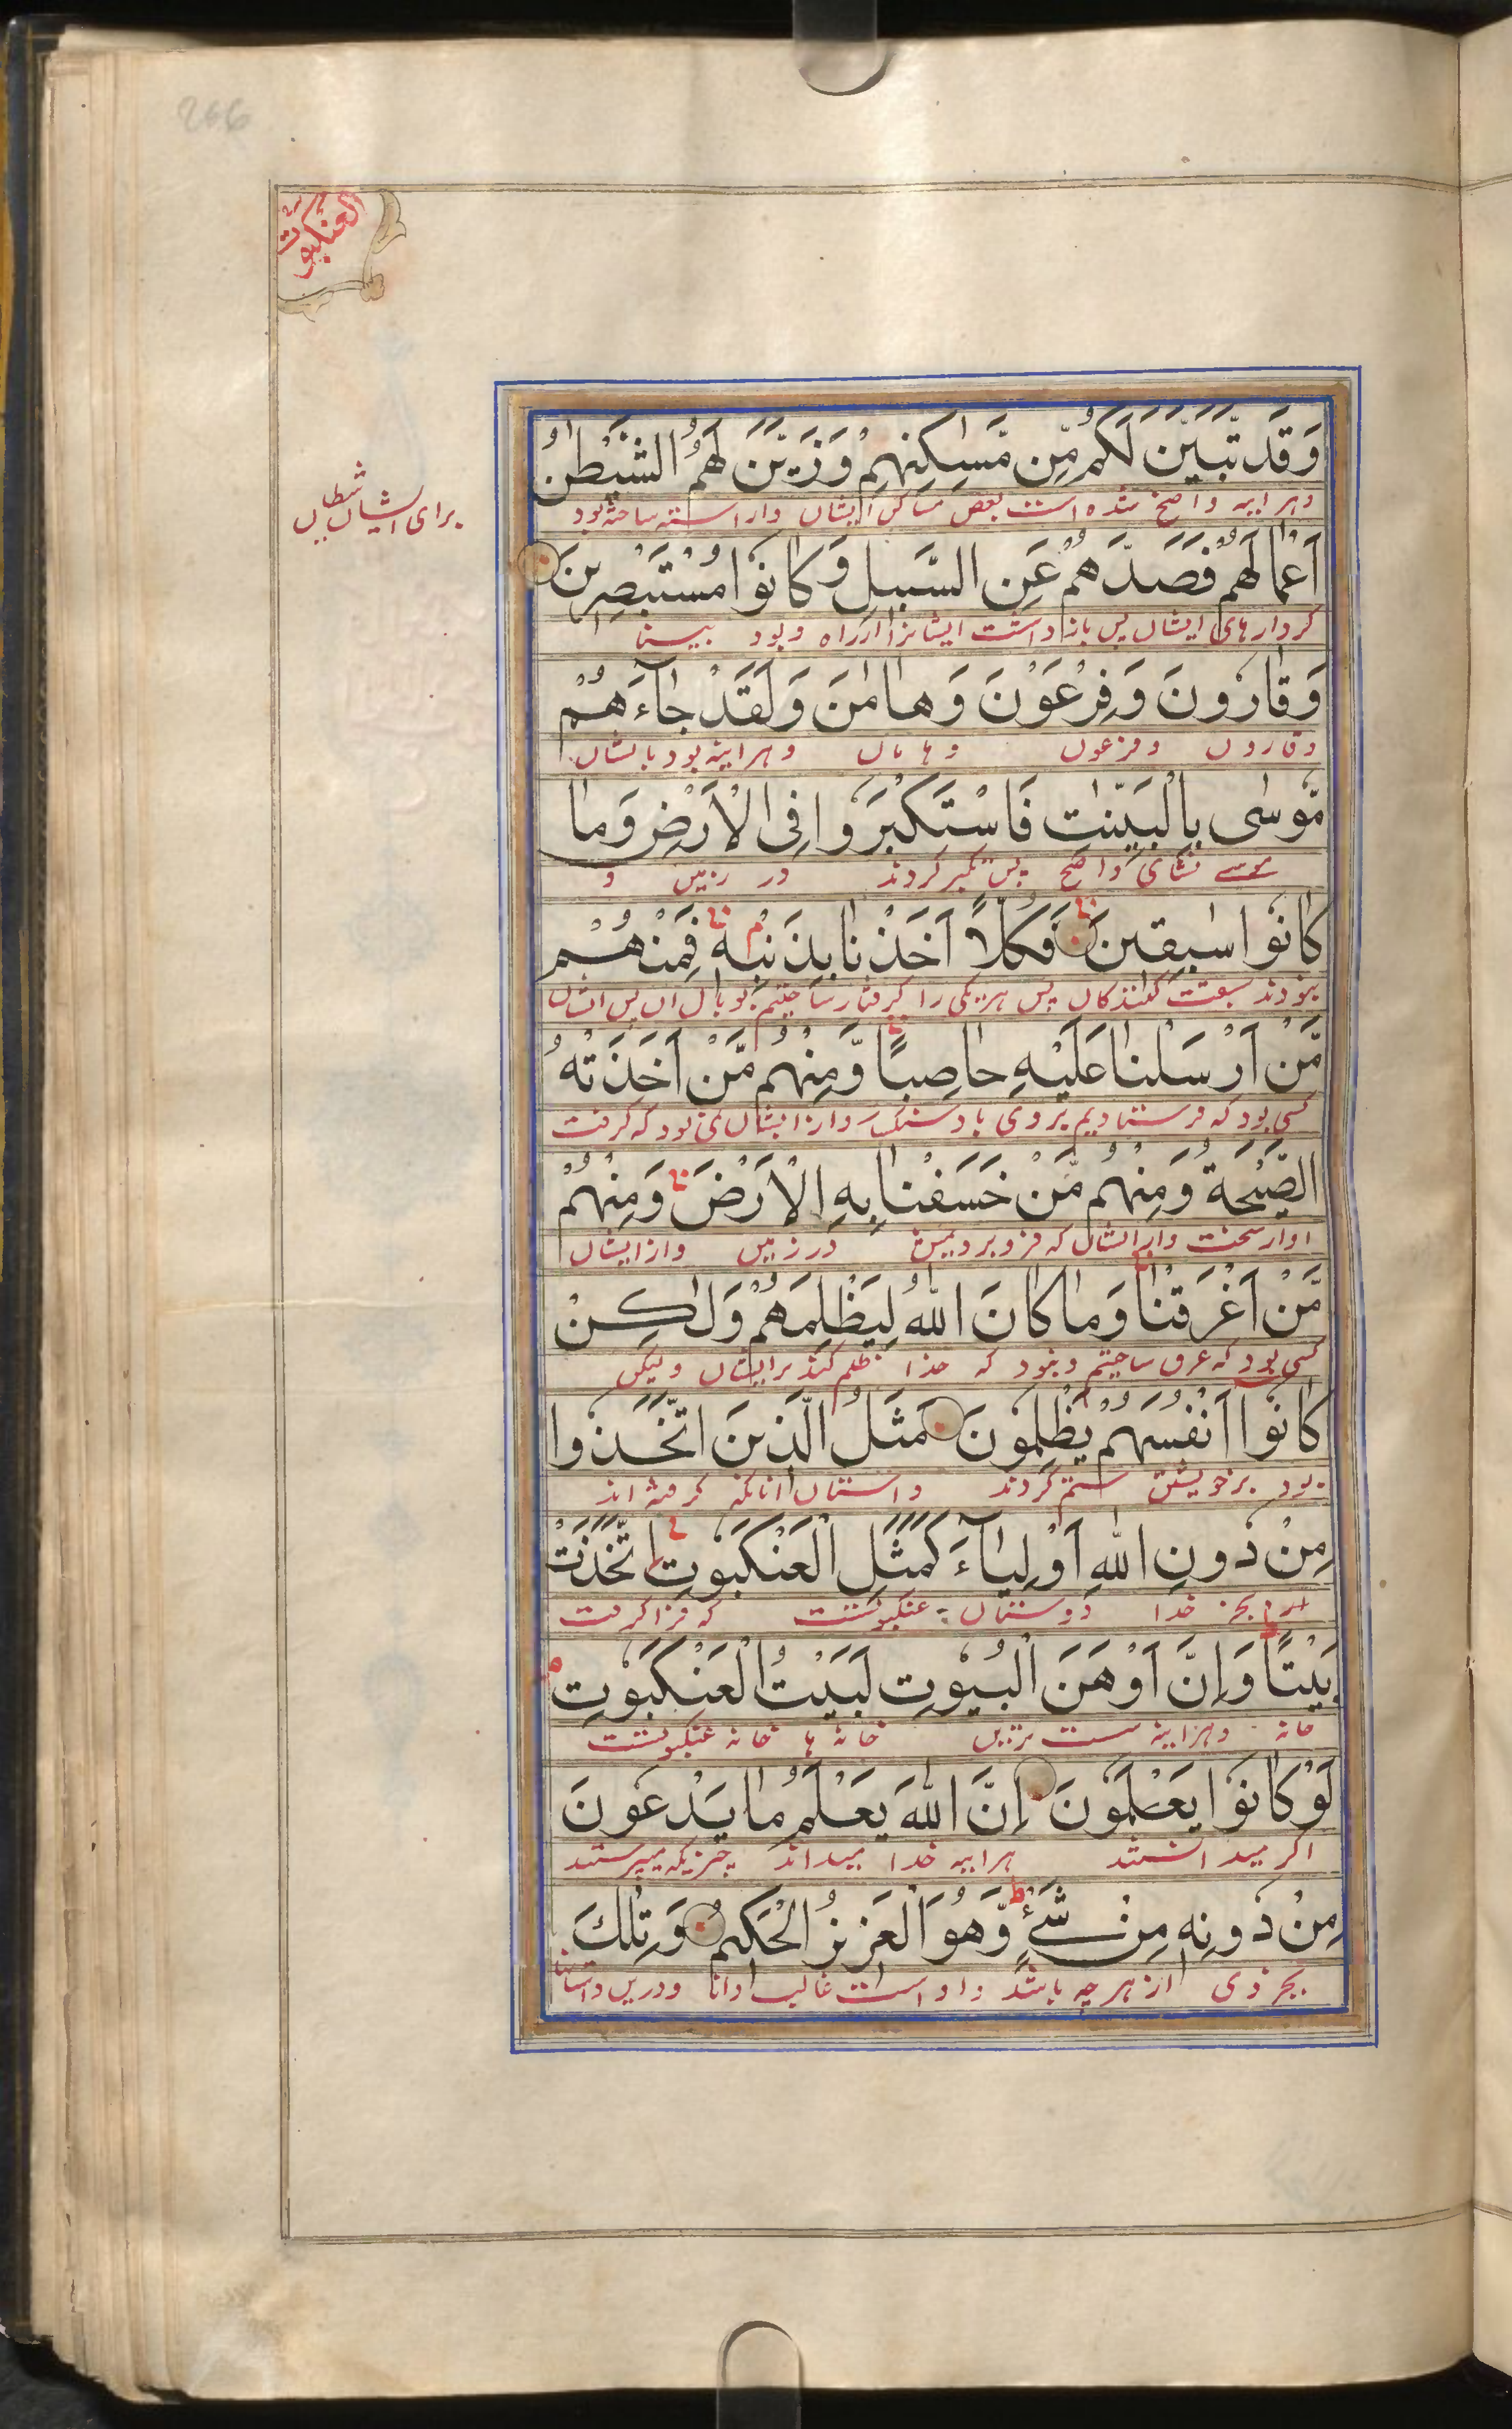 266
العنکبوت
وَقَد تَّبَيَّنَ لَكُم مِّن مَّسٰكِنِهِمْ وَزَيَّنَ لَهُمُ الشَّيْطٰنُ
وهرایینه واضح شده است بعض مساکن ایشان واراسته ساخته بود
برای ایشان شیطان
اَعْمَالَهُمْ فَصَدَّهُمْ عَنِ السَّبِيلِ وَكَانُوا مُسْتَبْصِرِينَ
کردارهای ایشان پس بازداشت ایشانرا ازراه وبود بینا
وَقَارُونَ وَفِرْعَوْنَ وَهَامٰنَ وَلَقَدْ جَآءَهُمْ
وقارون وفرعون وهامان وهرایینه بود باایشان
مُّوسٰى بِالْبَيِّنٰتِ فَاسْتَكْبَرُوا فِى الْاَرْضِ وَمَا
موسے نشانی واضح پس تکبر کردند در زمین و
كَانُوا سٰبِقِينَ فَكُلًّا اَخَذْنَا بِذَنْبِهٖ فَمِنْهُمْ
نبودند سبقت کنندکان پس هریکی را کرفتار ساختیم بوبال ان پس ایشان
مَّنْ اَرْسَلْنَا عَلَيْهِ حَاصِبًا وَّمِنْهُم مَّنْ اَخَذَتْهُ
کسی بود که فرستادیم بروی باد سنکبار وازایشان کسی بود که کرفت
الصَّيْحَةُ وَمِنْهُم مَّنْ خَسَفْنَا بِهِ الْاَرْضَ وَمِنْهُم
اواز سخت وازایشان که فروبردیمش درزمین وازایشان
مَّنْ اَغْرَقْنَا وَمَا كَانَ اللّٰهُ لِيَظْلِمَهُمْ وَلٰكِنْ
کسی بود که غرق ساختیم ونبود که خدا ظلم کند برایشان ولیکن
كَانُوا اَنْفُسَهُمْ يَظْلِمُونَ مَثَلُ الَّذِينَ اتَّخَذُوا
بود برخویشتن ستم کردند داستان انانکه کرفته اند
مِنْ دُونِ اللّٰهِ اَوْلِيَآءَ كَمَثَلِ الْعَنْكَبُوتِ اتَّخَذَتْ
بجز خدا دوستان عنکبوتست که فراکرفت
بَيْتًا وَاِنَّ اَوْهَنَ الْبُيُوتِ لَبَيْتُ الْعَنْكَبُوتِ
خانه وهرایینه سست ترین خانه ها خانه عنکبوتست
لَوْ كَانُوا يَعْلَمُونَ اِنَّ اللّٰهَ يَعْلَمُ مَا يَدْعُونَ
اکر میدانستند هرایینه خدا میداند چیزیکه میپرستند
مِنْ دُونِهٖ مِنْ شَىْءٍ وَّهُوَ الْعَزِيزُ الْحَكِيمُ وَتِلْكَ
بجز وی از هرچه باشد واو است غالب دانا ودرین داستانها